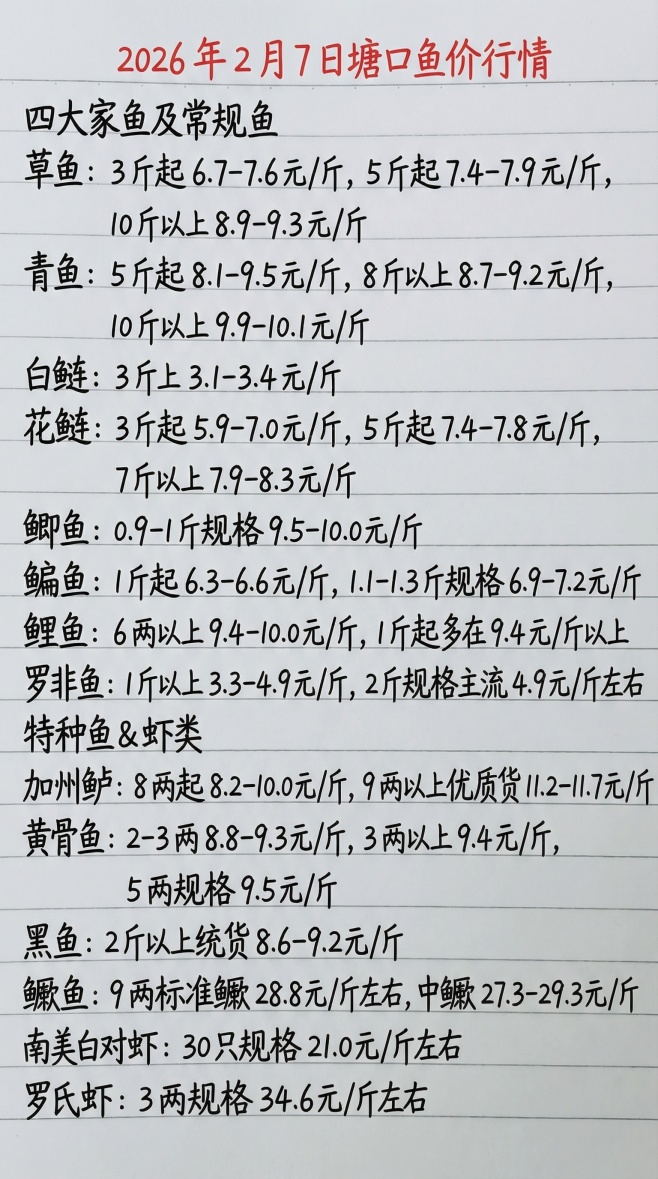 2026年2月7日塘口鱼价行情
四大家鱼及常规鱼
草鱼：3斤起6.7-7.6元/斤，5斤起7.4-7.9元/斤，
10斤以上8.9-9.3元/斤
青鱼：5斤起8.1-9.5元/斤，8斤以上8.7-9.2元/斤，
10斤以上9.9-10.1元/斤
白鲢：3斤上3.1-3.4元/斤
花鲢：3斤起5.9-7.0元/斤，5斤起7.4-7.8元/斤，
7斤以上7.9-8.3元/斤
鲫鱼：0.9-1斤规格9.5-10.0元/斤
鳊鱼：1斤起6.3-6.6元/斤，1.1-1.3斤规格6.9-7.2元/斤
鲤鱼：6两以上9.4-10.0元/斤，1斤起多在9.4元/斤以上
罗非鱼：1斤以上3.3-4.9元/斤，2斤规格主流4.9元/斤左右
特种鱼&虾类
加州鲈：8两起8.2-10.0元/斤，9两以上优质货11.2-11.7元/斤
黄骨鱼：2-3两8.8-9.3元/斤，3两以上9.4元/斤，
5两规格9.5元/斤
黑鱼：2斤以上统货8.6-9.2元/斤
鳜鱼：9两标准鳜28.8元/斤左右，中鳜27.3-29.3元/斤
南美白对虾：30只规格21.0元/斤左右
罗氏虾：3两规格34.6元/斤左右